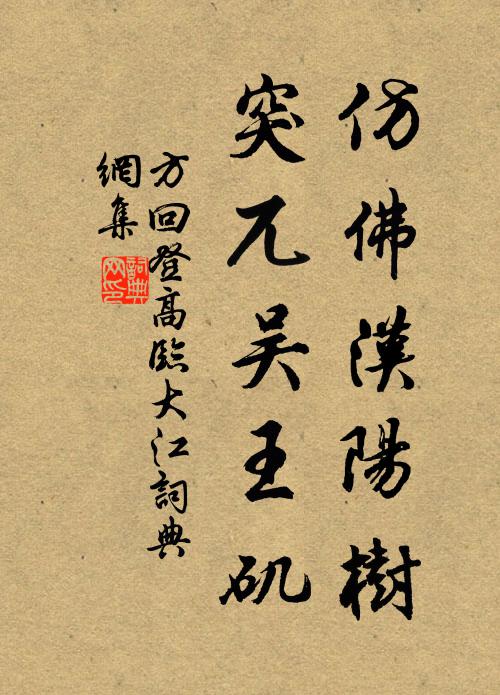 仿佛漢陽樹
突兀吴王矶
方回登高臨大江詞典
網集
詞典
网印